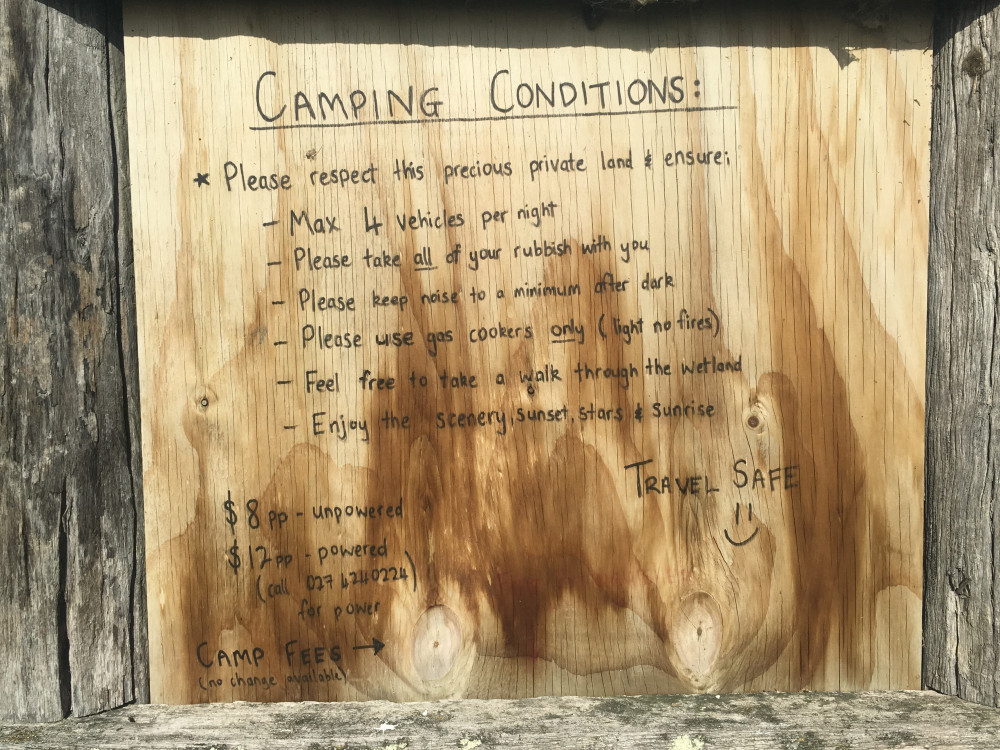 CAMPING CONDITIONS:
★ Please respect this precious private land & ensure;
- Max 4 vehicles per night
- Please take all of your rubbish with you
- Please keep noise to a minimum after dark
- Please use gas cookers only (light no fires)
- Feel free to take a walk through the wetland
- Enjoy the scenery, sunset, stars & sunrise
TRAVEL SAFE
$8pp - unpowered
$12pp - powered
(call 027 4240224)
for power
CAMP FEES →
(no change available)